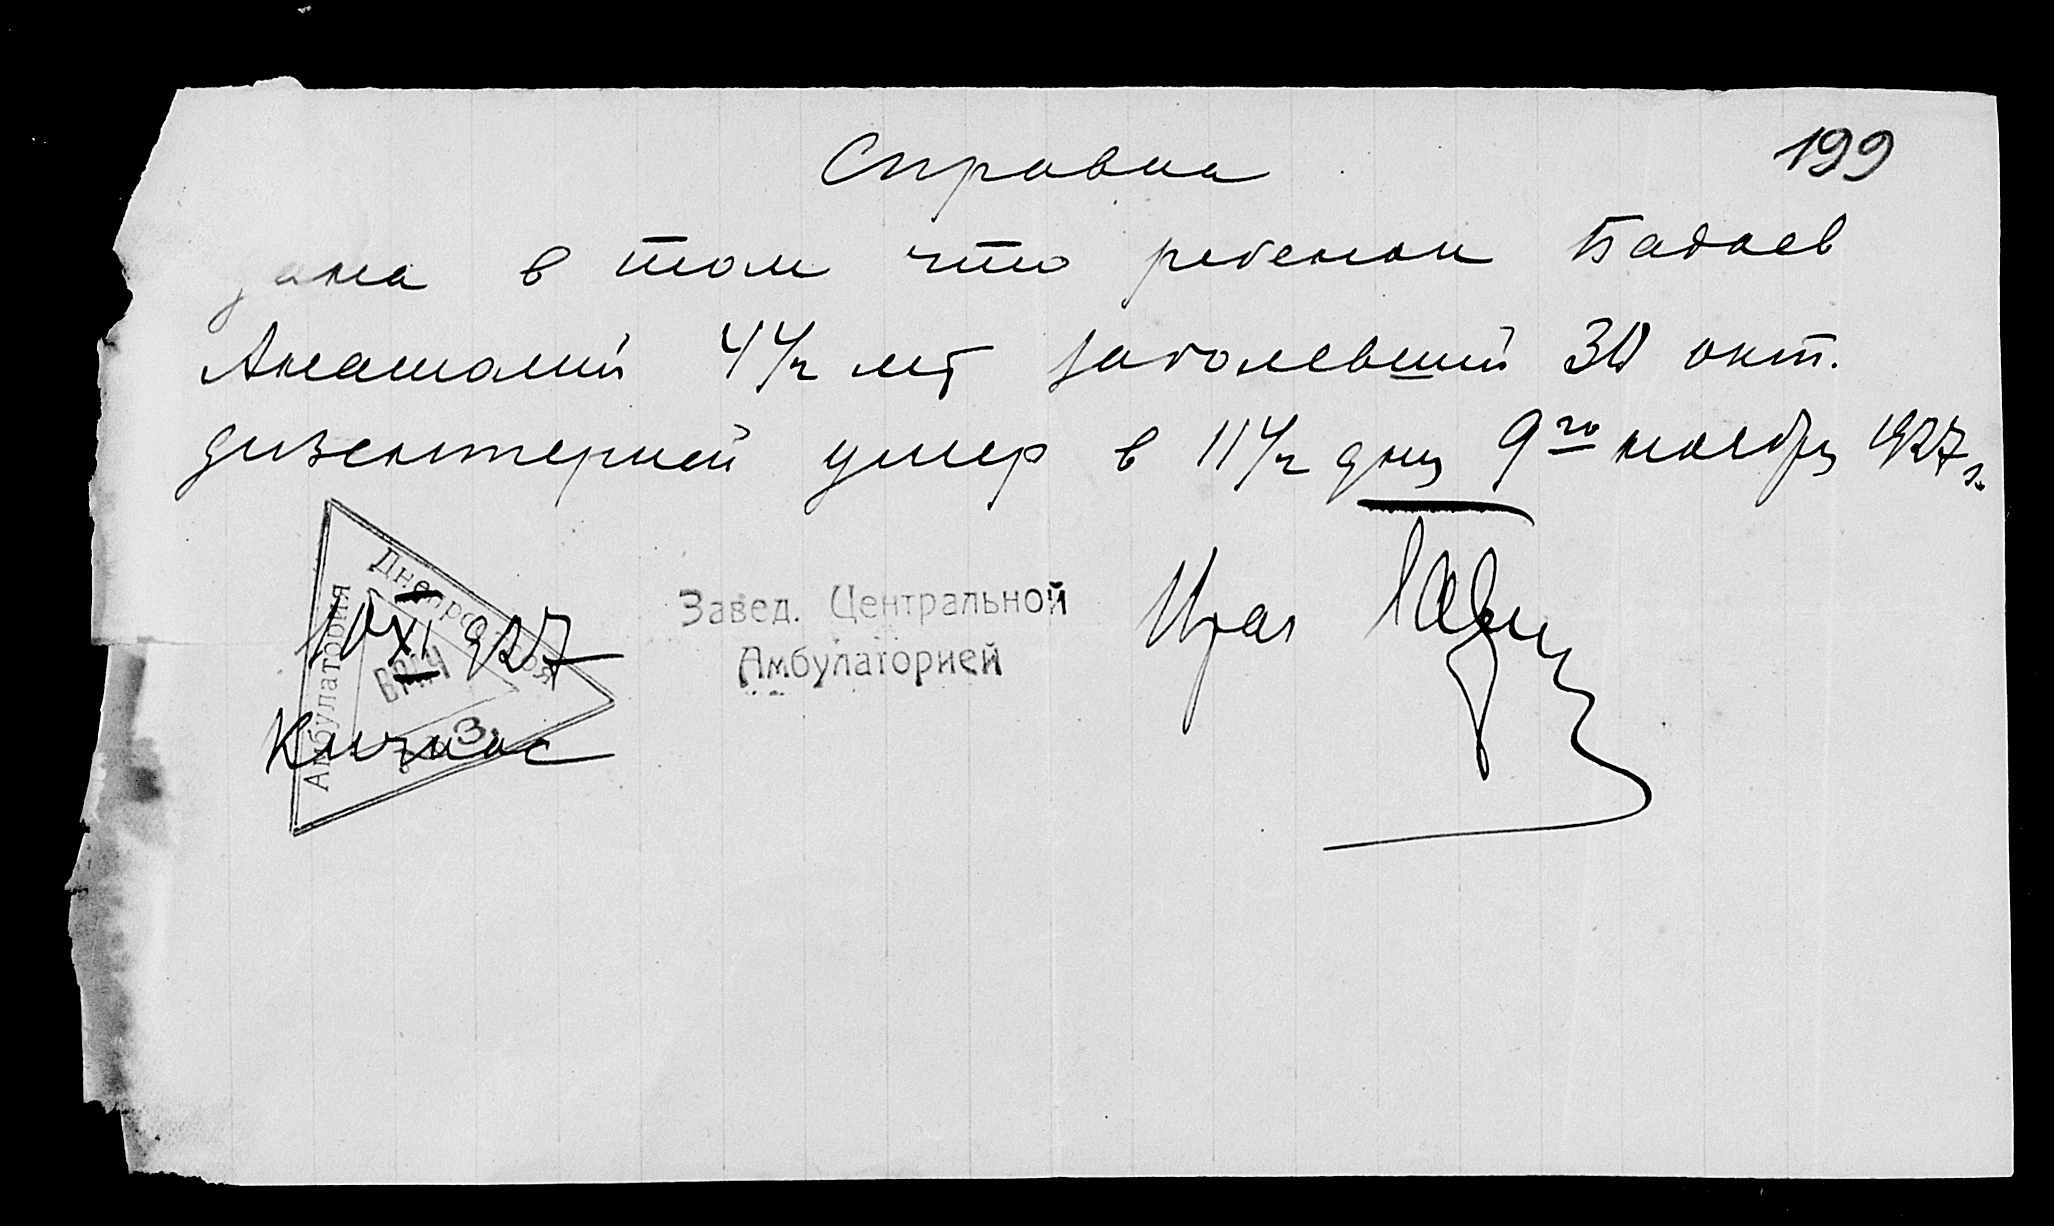 199
Справка
дана в том что ребенок Бадаев
Анатолий 4 1/2 лет заболевший 30 окт.
дизентерией умер в 11 1/2 дня 9го ноября 1927 г.
Днепровская
Амбулатория
ВРАЧ
3.
10 XI 927
Кичкас
Завед. Центральной
Амбулаторией
Врач